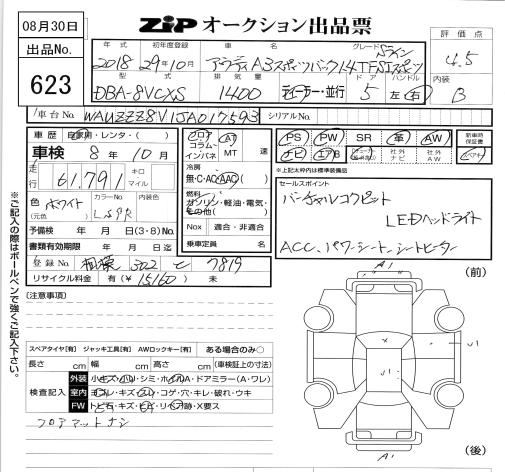 08月30日
ZiP オークション出品票
出品No.
623
年式 初年度登録 車名 グレード Sライン
2018 29年10月 アウディA3スポーツバック1.4TFSIスポーツ
型式 排気量 ドア ハンドル
DBA-8VCXS 1400 ディーラー・並行 5 左・右
評価点
4.5
内装
B
車台No. WAUZZZ8V1JA017593 シリアルNo.
車歴 自家用・レンタ・( )
車検 8年 10月
走行 61,791 キロ マイル
色 ホワイト (元色) カラーNo. LS9R 内装色
予備検 年 月 日(3・8)No.
書類有効期限 年 月 日迄
登録No. 相模 302 て 7819
リサイクル料金 有(¥15,160) 未
フロア コラム インパネ
AT MT 速
冷房
無・C・AC・AAC( )
燃料
ガソリン・軽油・電気・その他( )
Nox 適合・非適合
乗車定員 名
PS PW SR 革 AW
ナビ エアB 社外ナビ 社外AW
新車時保証書
*上記太枠内は標準装備品
セールスポイント
バーチャルコクピット
LEDヘッドライト
ACC、パワーシート、シートヒーター
※ご記入の際はボールペンで強くご記入下さい。
(注意事項)
スペアタイヤ[有] ジャッキ工具[有] AWロックキー[有] ある場合のみ○
長さ cm 幅 cm 高さ cm (車検証上の寸法)
検査記入
外装 小キズ・小凹・シミ・ホイルA・ドアミラー(A・ワレ)
室内 ヨゴレ・キズ・スレ・コゲ・穴・キレ・破れ・ウキ
FW トビ石・キズ・ヒビ・リペア跡・X要ス
フロアマットナシ
(前)
A1
(後)
A1